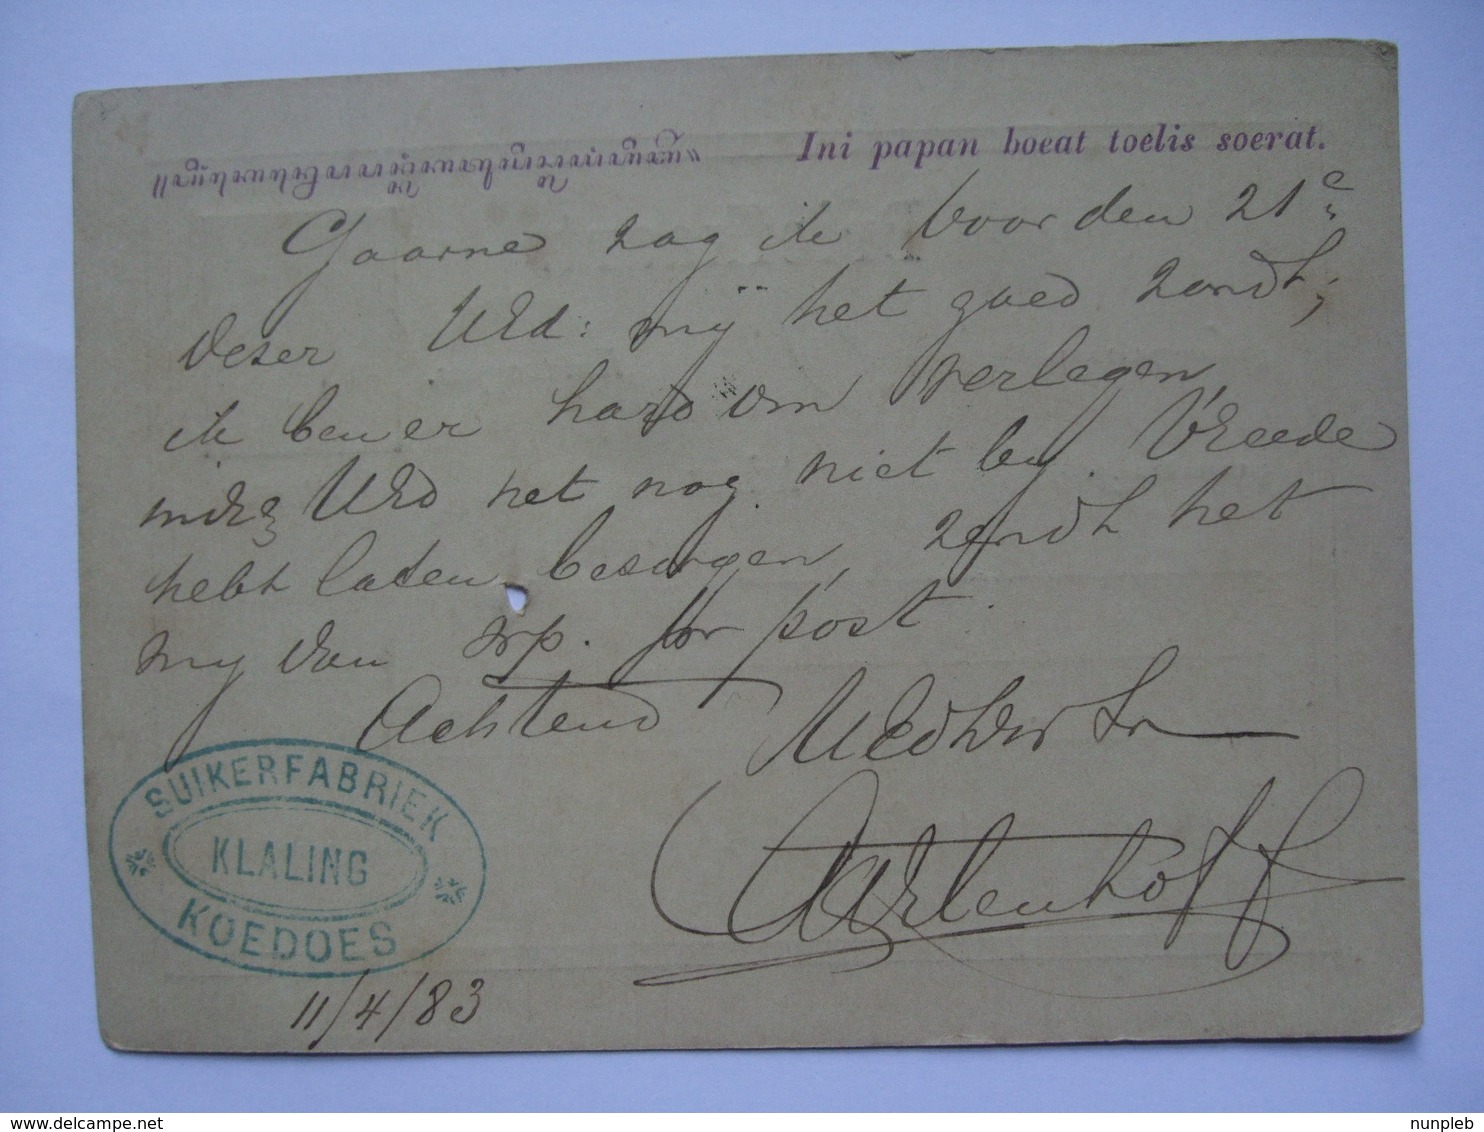 Ini papan boeat toelis soerat.
Gaarne zag ik voor den 21e
deser UEd: mij het goed zendt;
ik ben er hard om verlegen,
indz UEd het nog niet bij Vreede
hebt laten besorgen, zendt het
mij dan p. post
Achtend UEd
SUIKERFABRIEK
KLALING
KOEDOES
11/4/83
delcampe.net
nunpleb